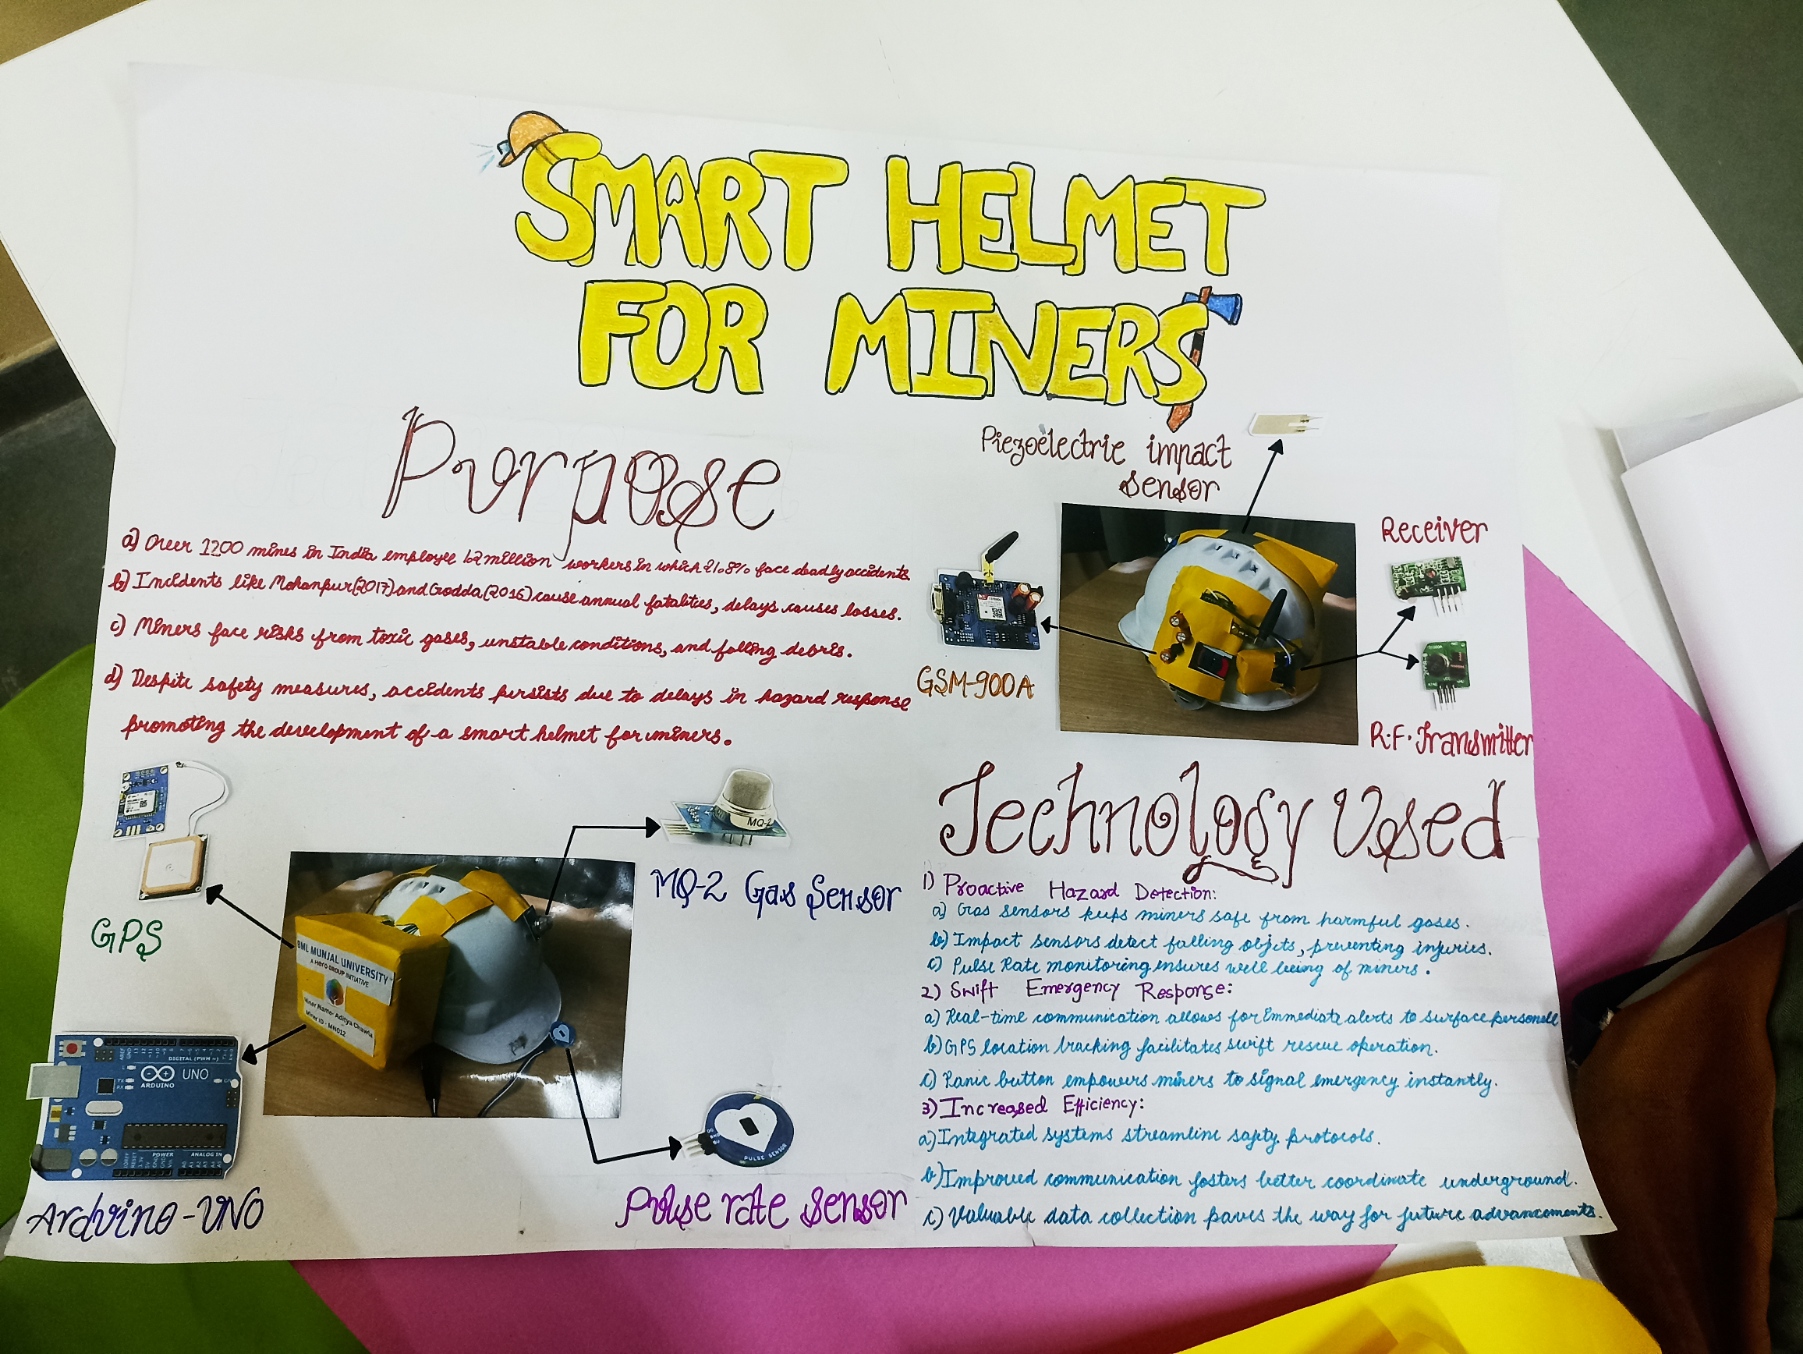 SMART HELMET
FOR MINERS
Purpose
a) Over 1200 mines in India employee 12 million workers in which 21.8% face deadly accidents.
b) Incidents like Mohanpur(2017) and Godda(2016) cause annual fatalties, delays causes losses.
c) Miners face risks from toxic gases, unstable conditions, and falling debris.
d) Despite safety measures, accidents persists due to delays in hazard response
promoting the development of a smart helmet for miners.
Piezoelectric impact
sensor
Receiver
GSM-900A
R.F. Transmitter
GPS
MQ-2
MQ-2 Gas Sensor
BML MUNJAL UNIVERSITY
A HERO GROUP INITIATIVE
Miner Name: Aditya Chawla
Miner ID: MN012
DIGITAL (PWM~)
UNO
ARDUINO
POWER
ANALOG IN
Arduino-UNO
PULSE SENSOR
Pulse rate sensor
Technology Used
1) Proactive Hazard Detection:
a) Gas sensors keeps miners safe from harmful gases.
b) Impact sensors detect falling objets, preventing injuries.
c) Pulse Rate monitoring ensures well being of miners.
2) Swift Emergency Response:
a) Real-time communication allows for immediate alerts to surface personell
b) GPS location tracking facilitates swift rescue operation.
c) Panic button empowers miners to signal emergency instantly.
3) Increased Efficiency:
a) Integrated systems streamline safety protocols.
b) Improved communication fosters better coordinate underground.
c) Valuable data collection paves the way for future advancements.